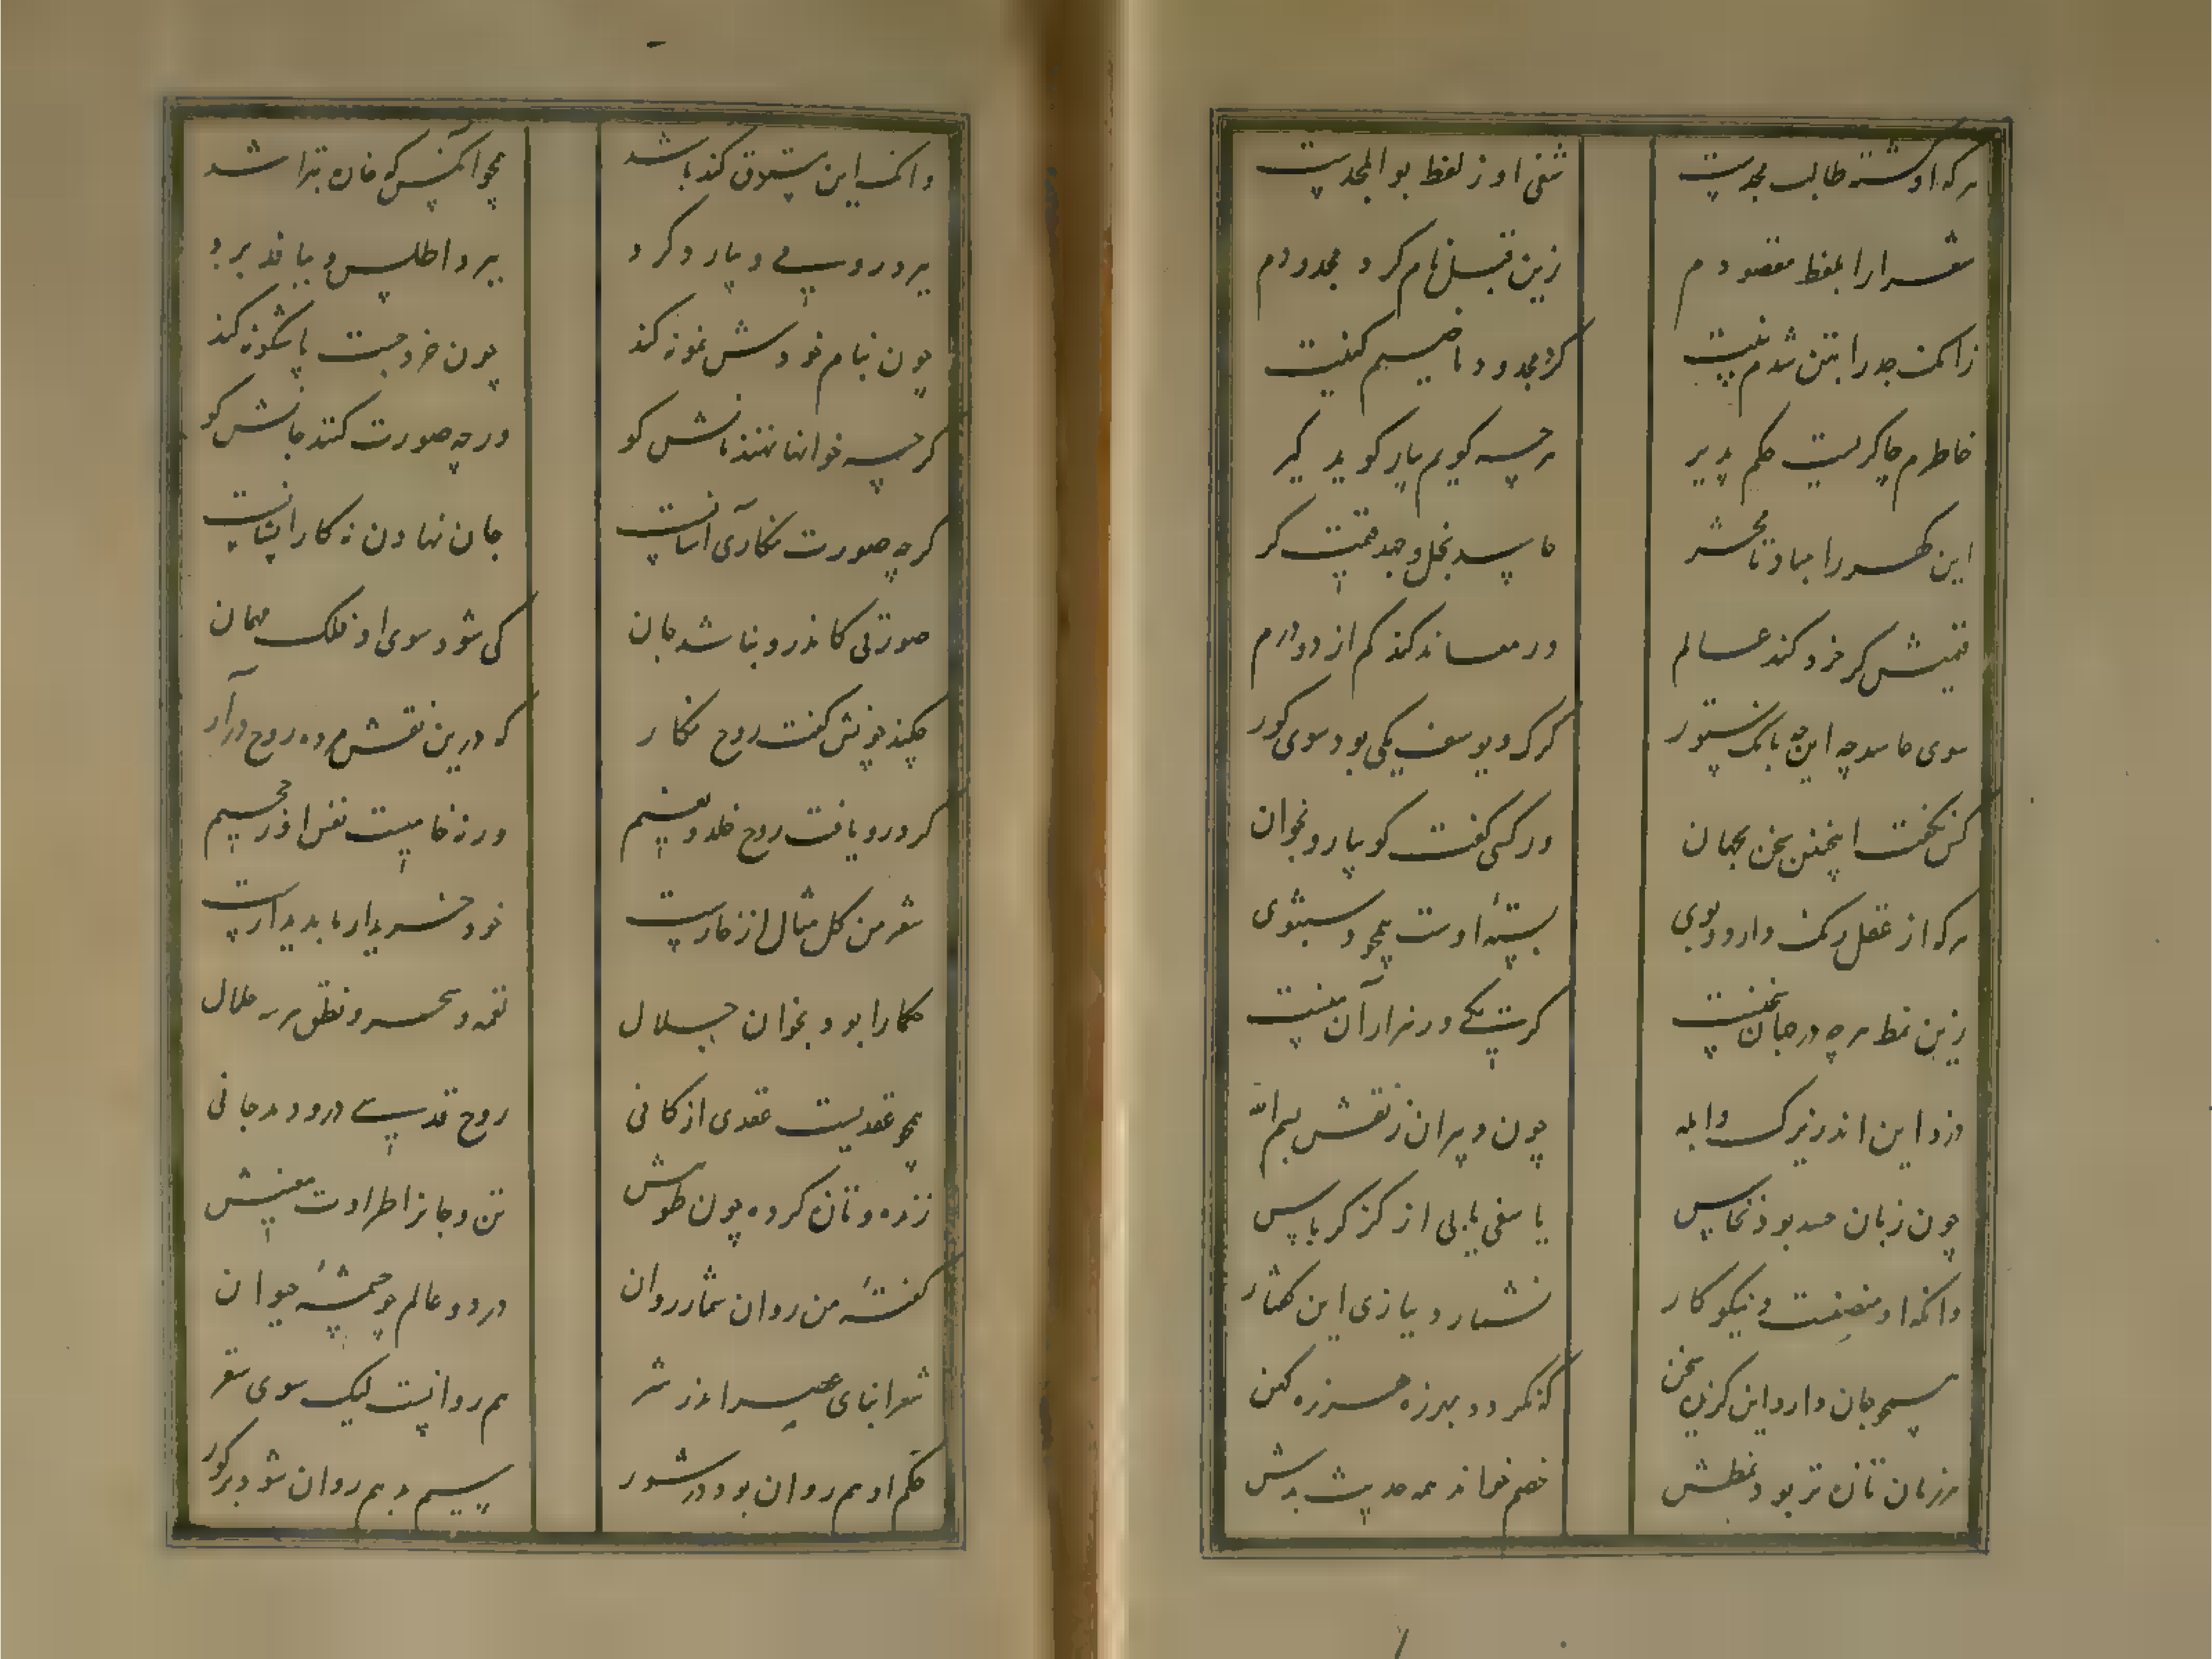 هر که او گشته طالب مجدست
شفی او ز لفظ بو المجدست
شعرا را بلفظ مقصودم
زین قبل نام کرد مجدودم
زانکه جد را بتن شدم بنیت
کرد مجدود ماضیم کنیت
خاطرم چاکریست حکم پذیر
هرچه گویم بیار گوید گیر
این گهر را مباد تا محشر
حاسد بخل وجد قیمت گر
قیمتش گر خرد کند عالم
ور معاند کند کم از دو درم
سوی حاسد چه این چه بانک ستور
گرگ و یوسف یکی بود سوی کور
کس نگفت اینچنین سخن بجهان
ور کسی گفت گو بیار و بخوان
هر که از عقل رنگ دارد و بوی
بسته اوست همچو سیبوی
زین نمط هر چه در جهان سخنست
گر یکی ور هزار آن منست
دزد این اندر نبرک و ابله
چون دبیران ز نقش بسم الله
چون زبان حسد بود نخاس
یاسفی یابی از گز کرباس
وانکه او منصفست و نیکوکار
نشمارد ببازی این گفتار
همچو جان دارد این گزیده سخن
که نگردد بهرزه هرزه کهن
هر زمان تازه تر بود نمطش
خصم خواند همه حدیث بدش
وانک این بشنود کند باشد
همچو آنکس که خانه بتراشد
ببرد روسی و بیارد گرد
ببرد اطلس و بیافد برد
چون بنام خودش نمونه کند
چون خرد جست باشگونه کند
گرچه خوانها نهند نانش کو
ور چه صورت کنند جانش کو
گرچه صورت نگاری آسانست
جان نهادن نه کار ایشانست
صورتی کاندرو نباشد جان
کی شود سوی او فلک مهمان
چکند چونش گفت روح نگار
که درین نقش مرده روح درآر
گر درو یافت روح خلد و نعیم
ورنه خامیست نفس او ز جحیم
شعر من کل مثال از خارست
خود خریدار ما بدیدارست
حکما را بود بخوان جلال
نغمه و سحر و نطق هر سه حلال
همچو عقدیست عقدی از کانی
روح قدسی درو دمد جانی
زنده و تازه کرده چون طوبیش
تن و جانرا طراوت معنیش
گفته من روان شمار روان
در دو عالم چو چشمه حیوان
شعر ابنای عصر اندر شر
هم روانست لیک سوی سقر
حکم او هم روان بود در شور
سیم بد هم روان شود بر کور